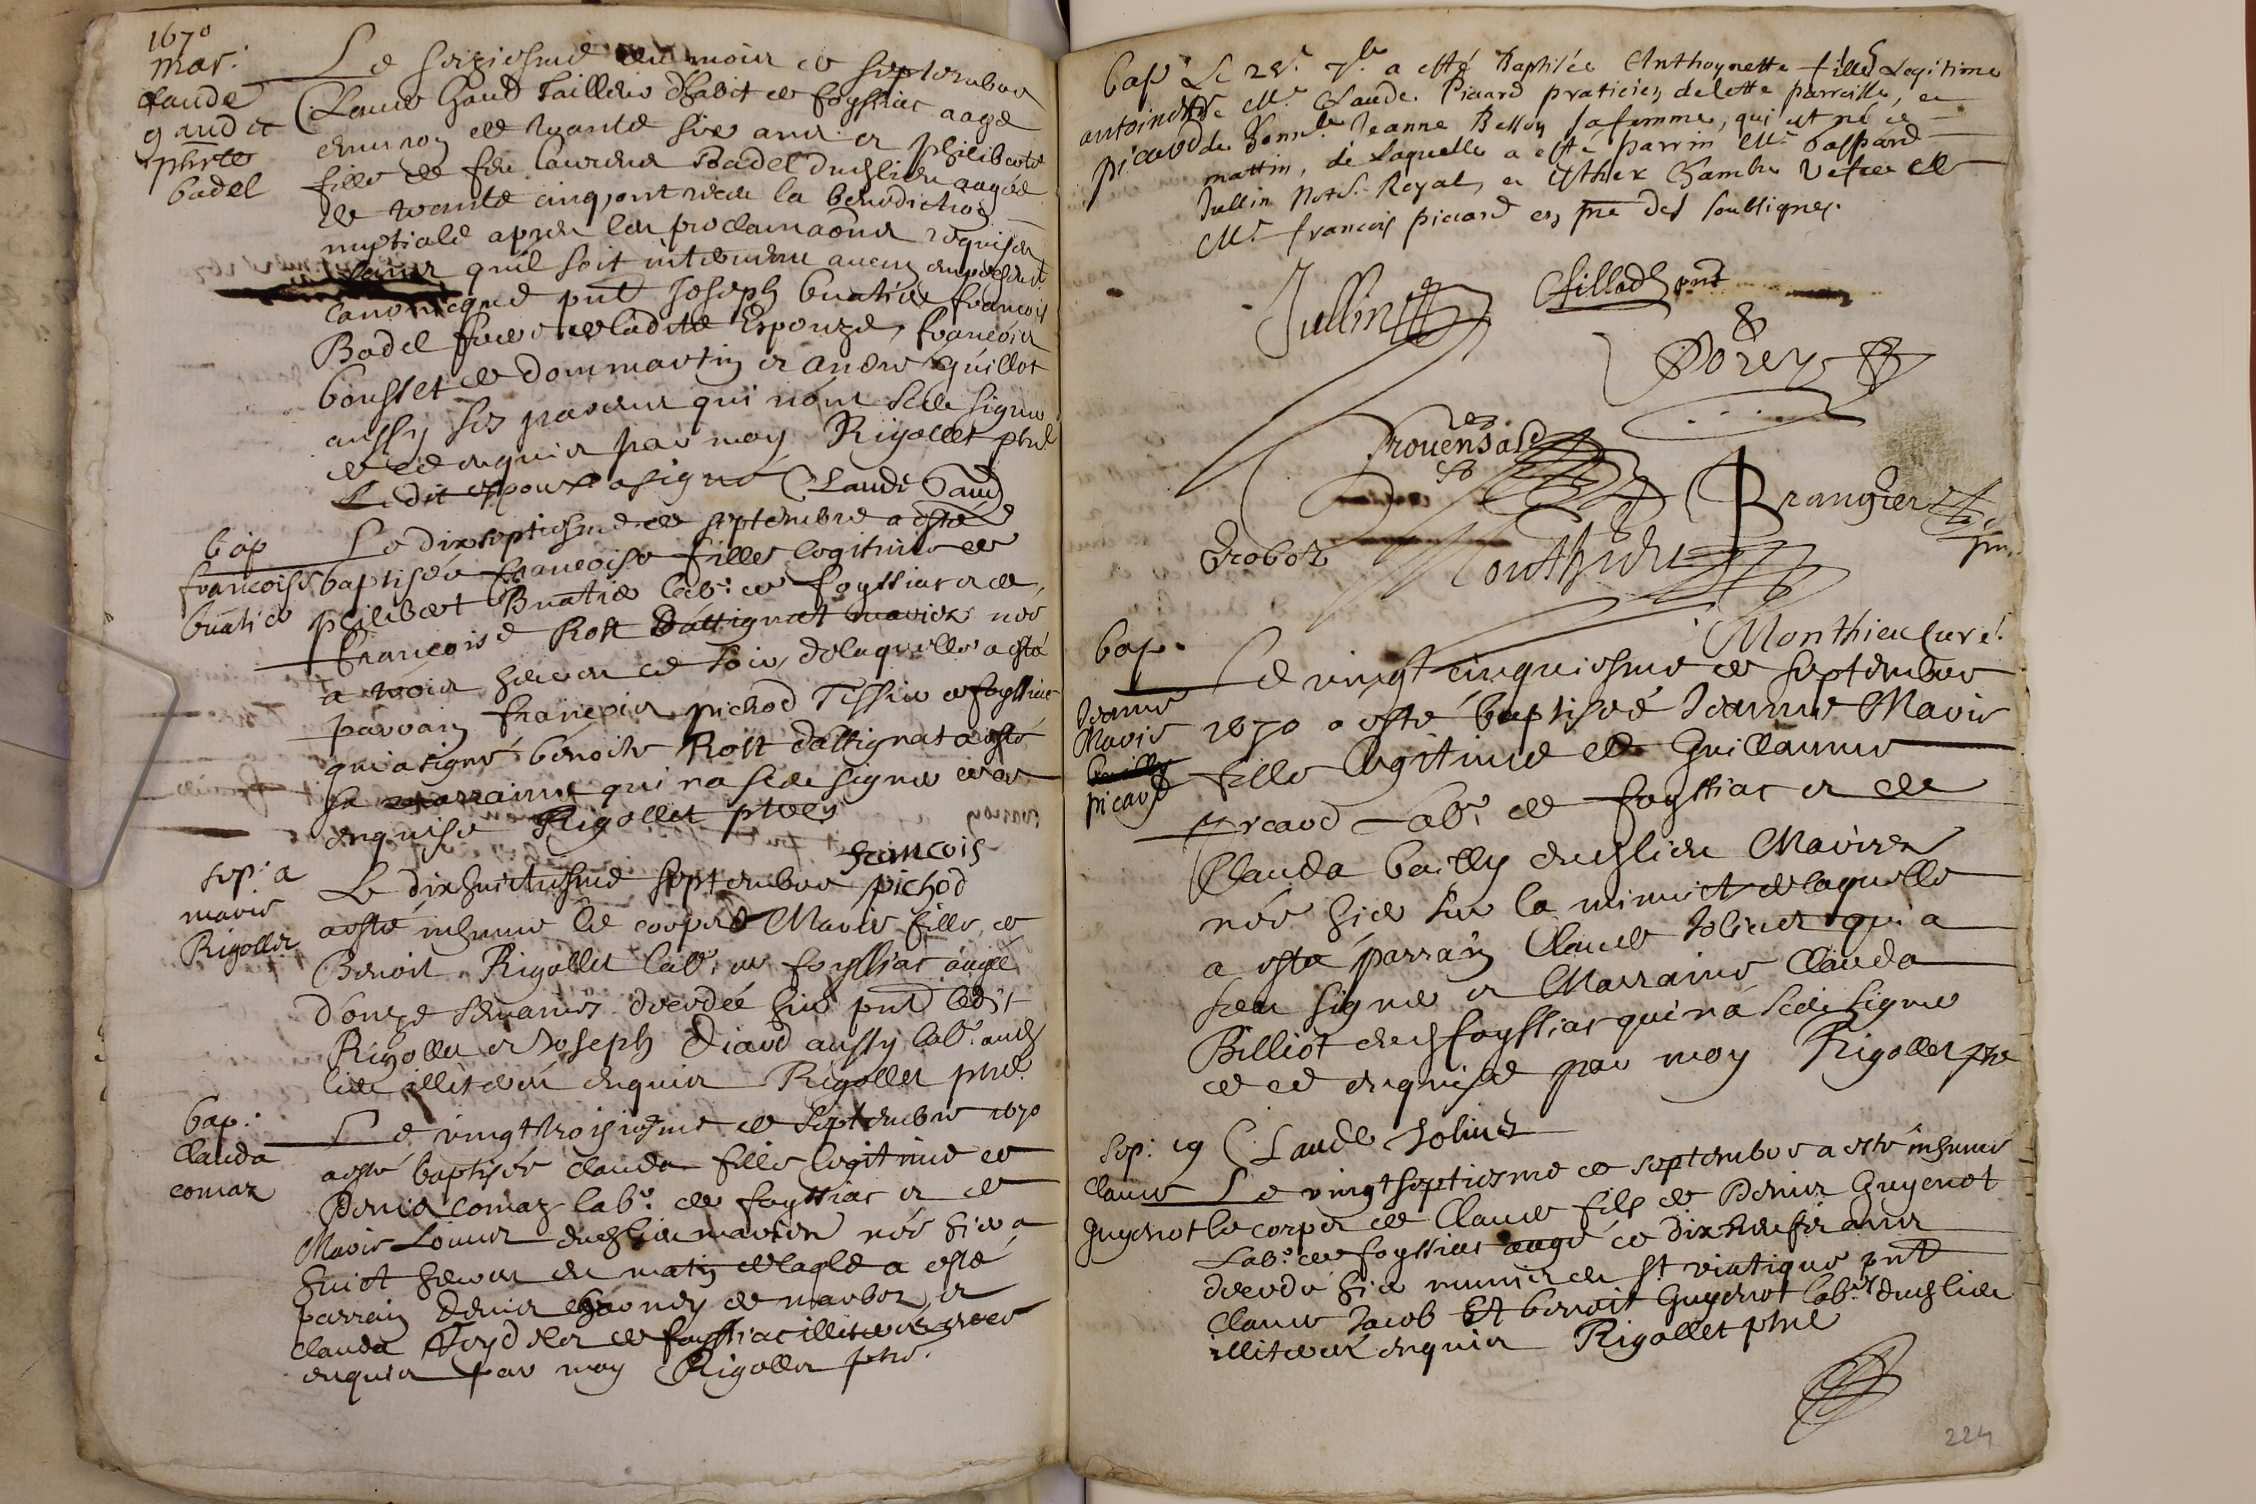 1670
mar:
Claude
gaud et
phirte
badel
Le seziesme du mois de septembre
Claude Gaud Tailleur d'habit de foyssiac aagé
environ de trante six ans et philiberte
fille de feu Badel dudit lieu aagée
de trante cinq ont receu la benediction
nuptiale apres les proclamaons requises
sans qu'il soit intervenu aucun empeschemt
canonicque pnt Joseph buatier francois
Badel frere de ladite Espouze, francois
bousset de dommartin et andré guillot
aussy ses parens qui n'ont sceu signer
de ce enquis par moy Rigollet pbre
Ledit espoux a signé Claude Gaud
bap
francoise
buatier
Le dix septiesme de septembre a esté
baptisée francoise fille legitime de
philibert Buatier lab. de foyssiac et de
francoise Rost d'attignat mariez née
a trois heures ce soir, de laquelle a esté
parrain francois pichod Tissier de foyssiac
qui a signé benoite Rost d'attignat a esté
sa marraine qui n'a sceu signer de ce
enquise Rigollet pbre
francois
pichod
sep: a
marie
Rigollet
Le dixhuictiesme septembre
a esté inhumé le corps de Marie fille de
Benoit Rigollet lab. de foyssiac aagée
d'onze semaines decedée hier pnt ledit
Rigollet et Joseph Diard aussy lab. audit
lieu illiterés enquis Rigollet pbre
bap:
Clauda
comaz
Le vingt troisiesme de Septembre 1670
a esté baptisée clauda fille legitime de
Denis Comaz lab. de foyssiac et de
Marie dudit lieu mariez née hier a
huict heures du matin de laqle a esté
parrain Denis de marboz et
Clauda de foyssiac illiterés de ce
enquis par moy Rigollet pbre.
bap
antoinette
picard
Le 25e 7b. a esté Baptisée Anthoynette fille Legitime
de Mr. Claude Picard praticien de cette parroisse, et
de honn.le Jeanne Besson sa femme, qui est né ce
mattin, de laquelle a esté parrin Mr. Gaspard
Jullin Not. Royal, et Esther Chambre Vefve de
Mr. francois picard en pnce des soubsignes.
Jullin
Chillod pnt
Dorez
Prouensal
Brangier
Brobot
Monthieu
Monthieu Curé.
bap.
Jeanne
Marie
picard
Le vingt cinquiesme de septembre
1670 a esté baptisée Jeanne Marie
fille legitime de Guillaume
picard Lab. de foyssiac et de
Clauda bailly dudit lieu Mariez
née hier sur la minuict de laquelle
a esté parrain Claude Joliet qui a
sceu signer et Marraine Clauda
Billiot dudit foyssiac qui n'a sceu signer
de ce enquise par moy Rigollet pbre
Claude Joliet
Sep: 19
Claude
guyenot
Le vingt septiesme de septembre a esté inhumé
le corps de Claude fils de Denis Guyenot
Lab. de foyssiac aagé de dix neuf ans
decedé hier munis du St viatique pnt
Claude Jacob Et benoit Guyenot lab.rs dudit lieu
illiterés enquis Rigollet pbre
224